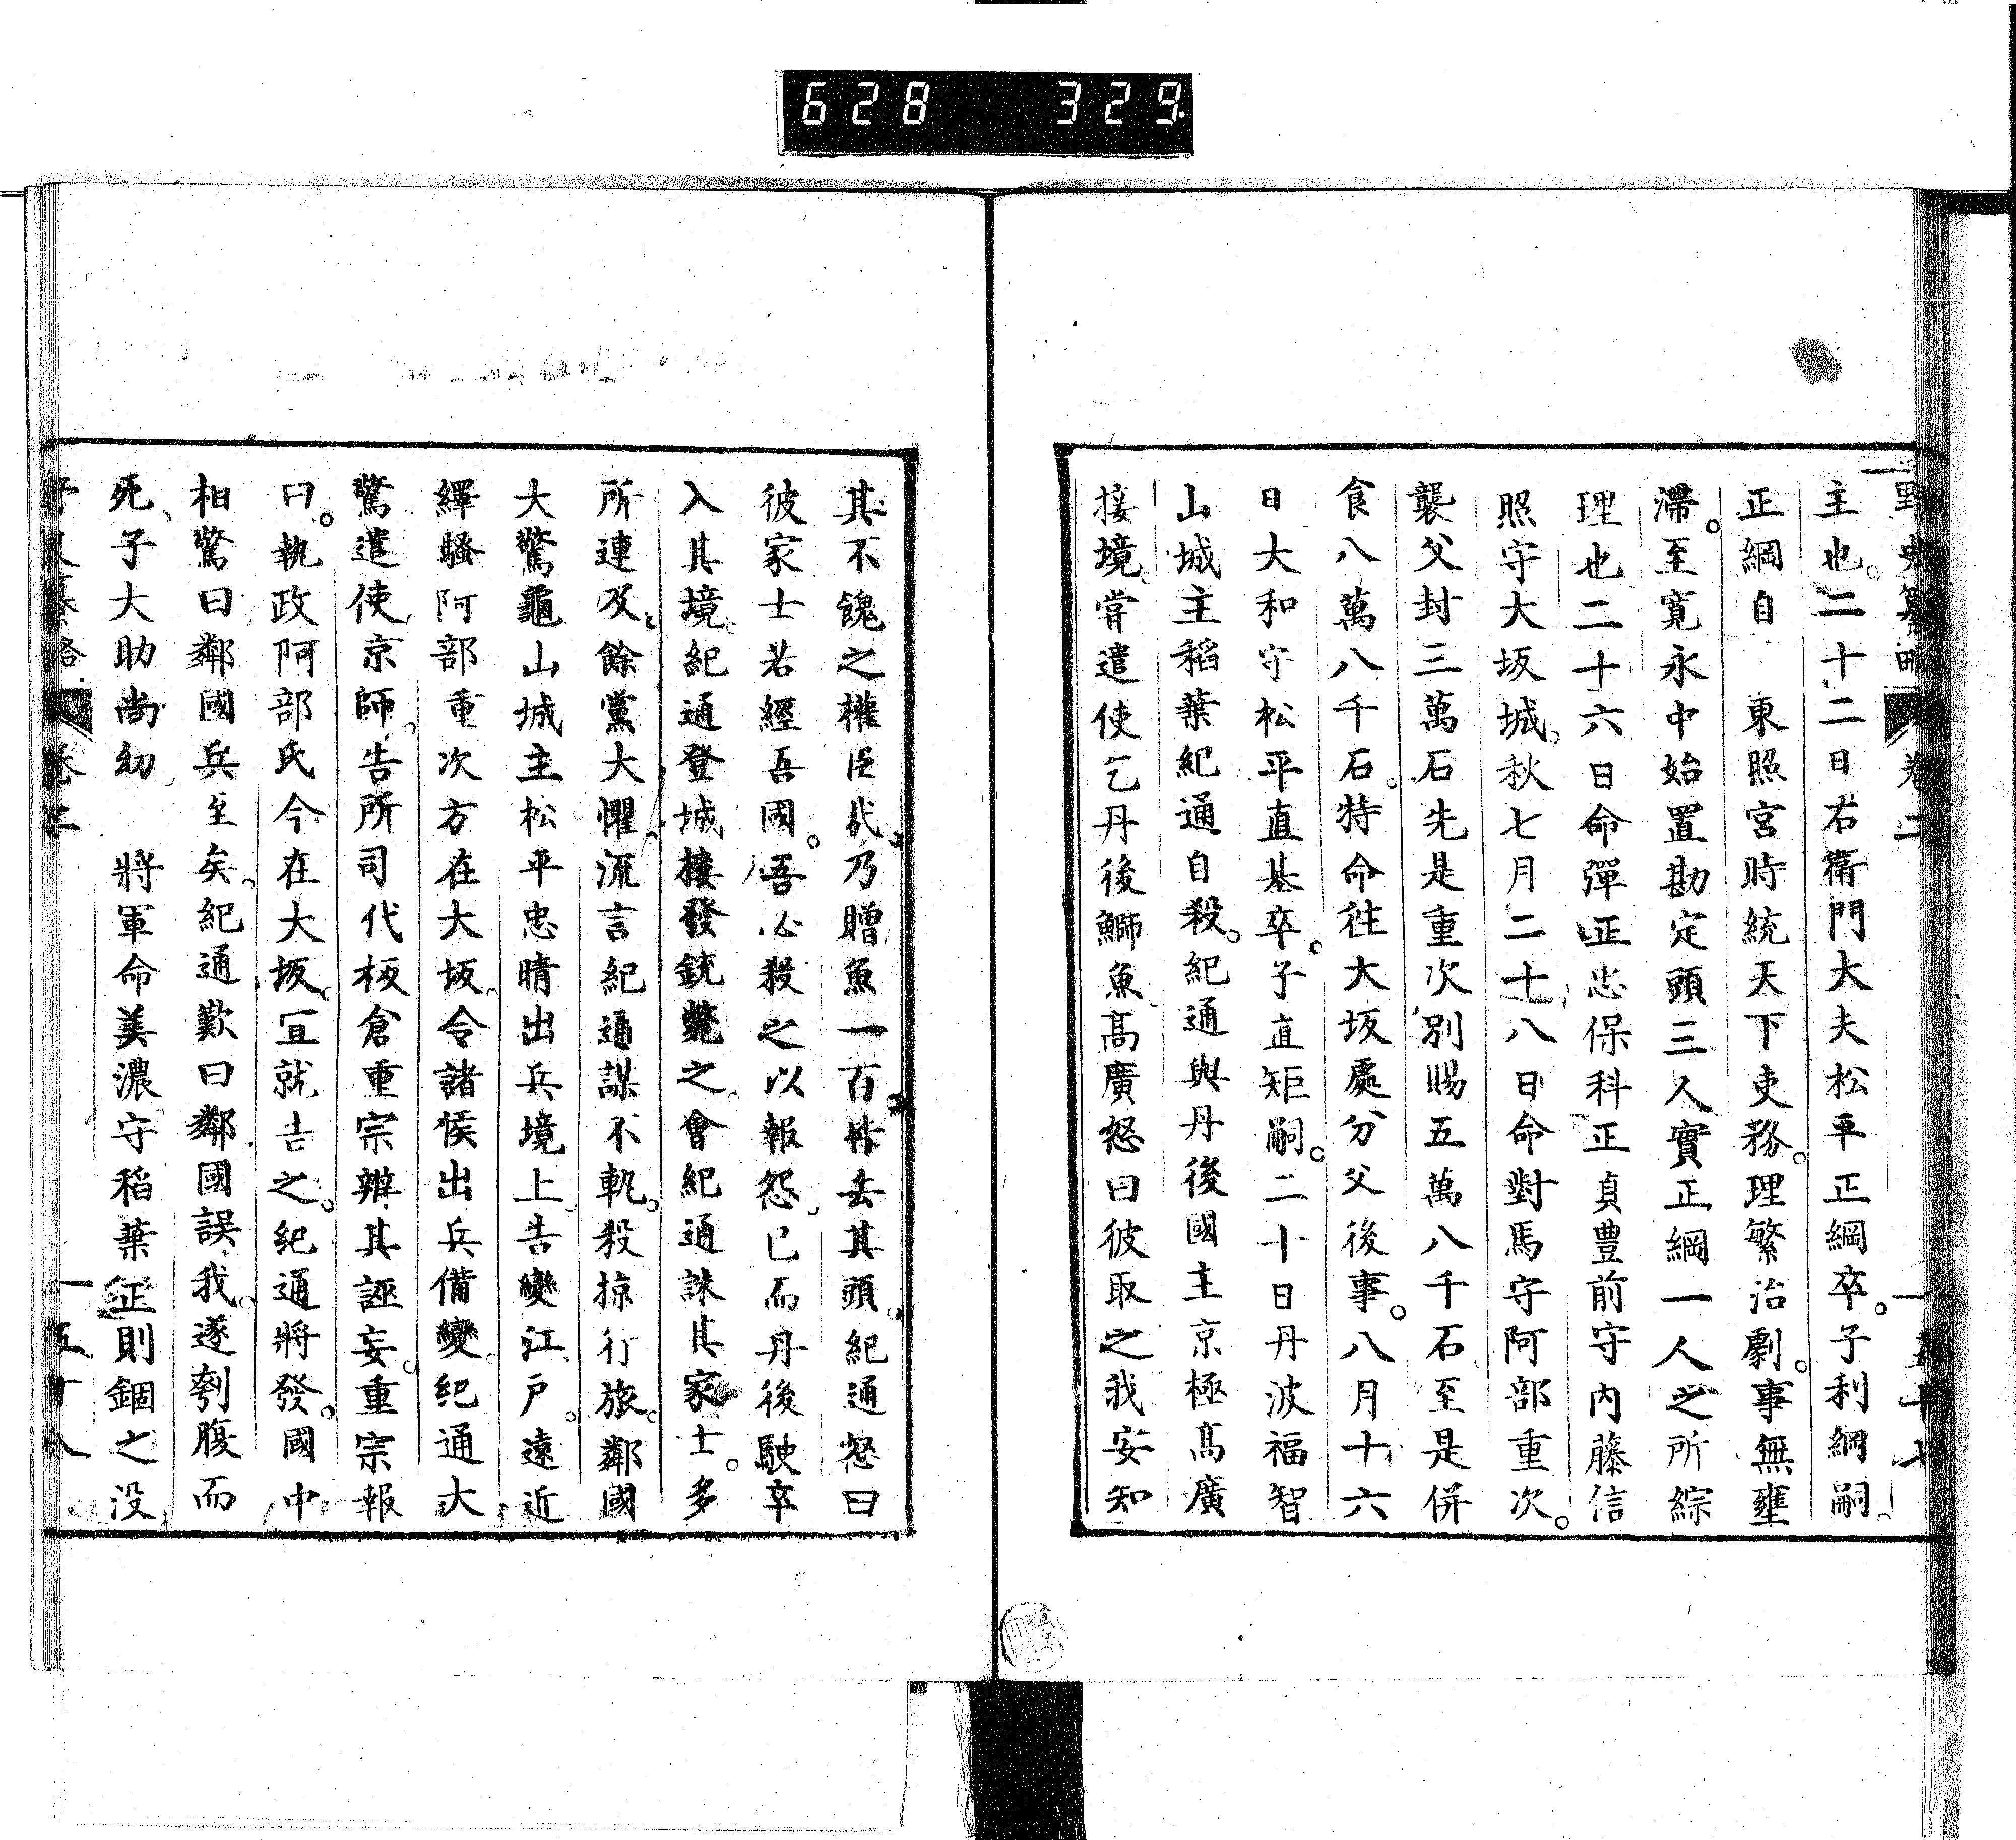 628 329
野史纂略 卷二 一五十七
主也。二十二日右衛門大夫松平正綱卒。子利綱嗣。
正綱自 東照宮時統天下吏務。理繁治劇。事無壅
滯。至寛永中始置勘定頭三人實正綱一人之所綜
理也二十六日命彈正忠保科正貞豊前守内藤信
照守大坂城。秋七月二十八日命對馬守阿部重次。
襲父封三萬石先是重次別賜五萬八千石至是併
食八萬八千石。特命往大坂處分父後事。八月十六
日大和守松平直基卒。子直矩嗣。二十日丹波福智
山城主稻葉紀通自殺。紀通與丹後國主京極高廣
接境。嘗遣使乞丹後鰤魚。高廣怒曰彼取之我安知
其不餽之權臣哉。乃贈魚一百皆去其頭。紀通怒曰
彼家士若經吾國。吾必殺之以報怨。已而丹後駛卒
入其境紀通登城樓發銃斃之。會紀通誅其家士。多
所連及。餘黨大懼。流言紀通謀不軌。殺掠行旅。鄰國
大驚龜山城主松平忠晴出兵境上。告變江戸。遠近
繹騷阿部重次方在大坂。令諸侯出兵備變。紀通大
驚遣使京師。告所司代板倉重宗辨其誣妄。重宗報
曰。執政阿部氏今在大坂。宜就告之。紀通將發。國中
相驚曰鄰國兵至矣。紀通歎曰鄰國誤我。遂刳腹而
死、子大助尚幼 將軍命美濃守稻葉正則錮之没
野史纂略 卷二 一五十八